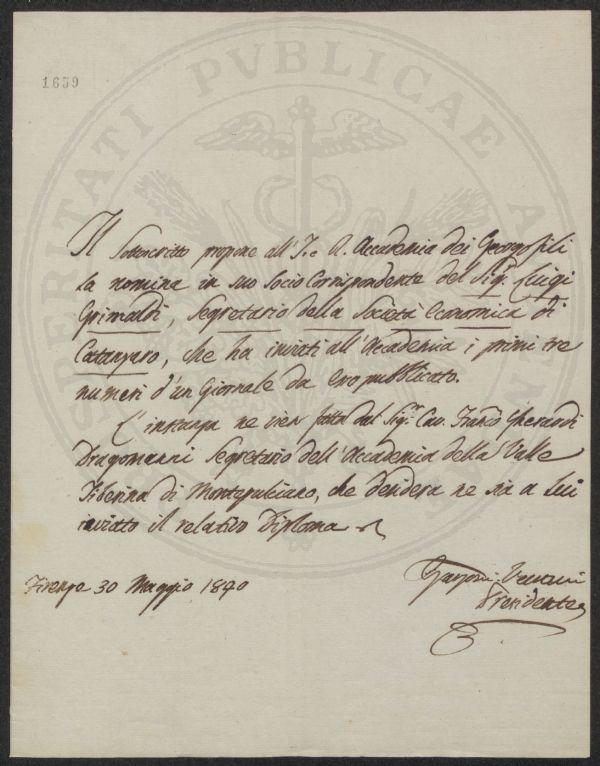 1659
PROSPERITATI PVBLICAE AVGENDAE
Il Sottoscritto propone all'I. e R. Accademia dei Georgofili
la nomina in suo Socio Corrispondente del Sig.r Luigi
Grimaldi, Segretario della Società Economica di
Catanzaro, che ha inviati all'Accademia i primi tre
numeri d'un Giornale da Esso pubblicato.
L'instanza ne vien fatta dal Sig.r Cav. Franc.o Gherardi
Dragomanni Segretario dell'Accademia della Valle
Tiberina di Montepulciano, che desidera ne sia a Lui
inviato il relativo Diploma
Firenze 30 Maggio 1840
Presidente